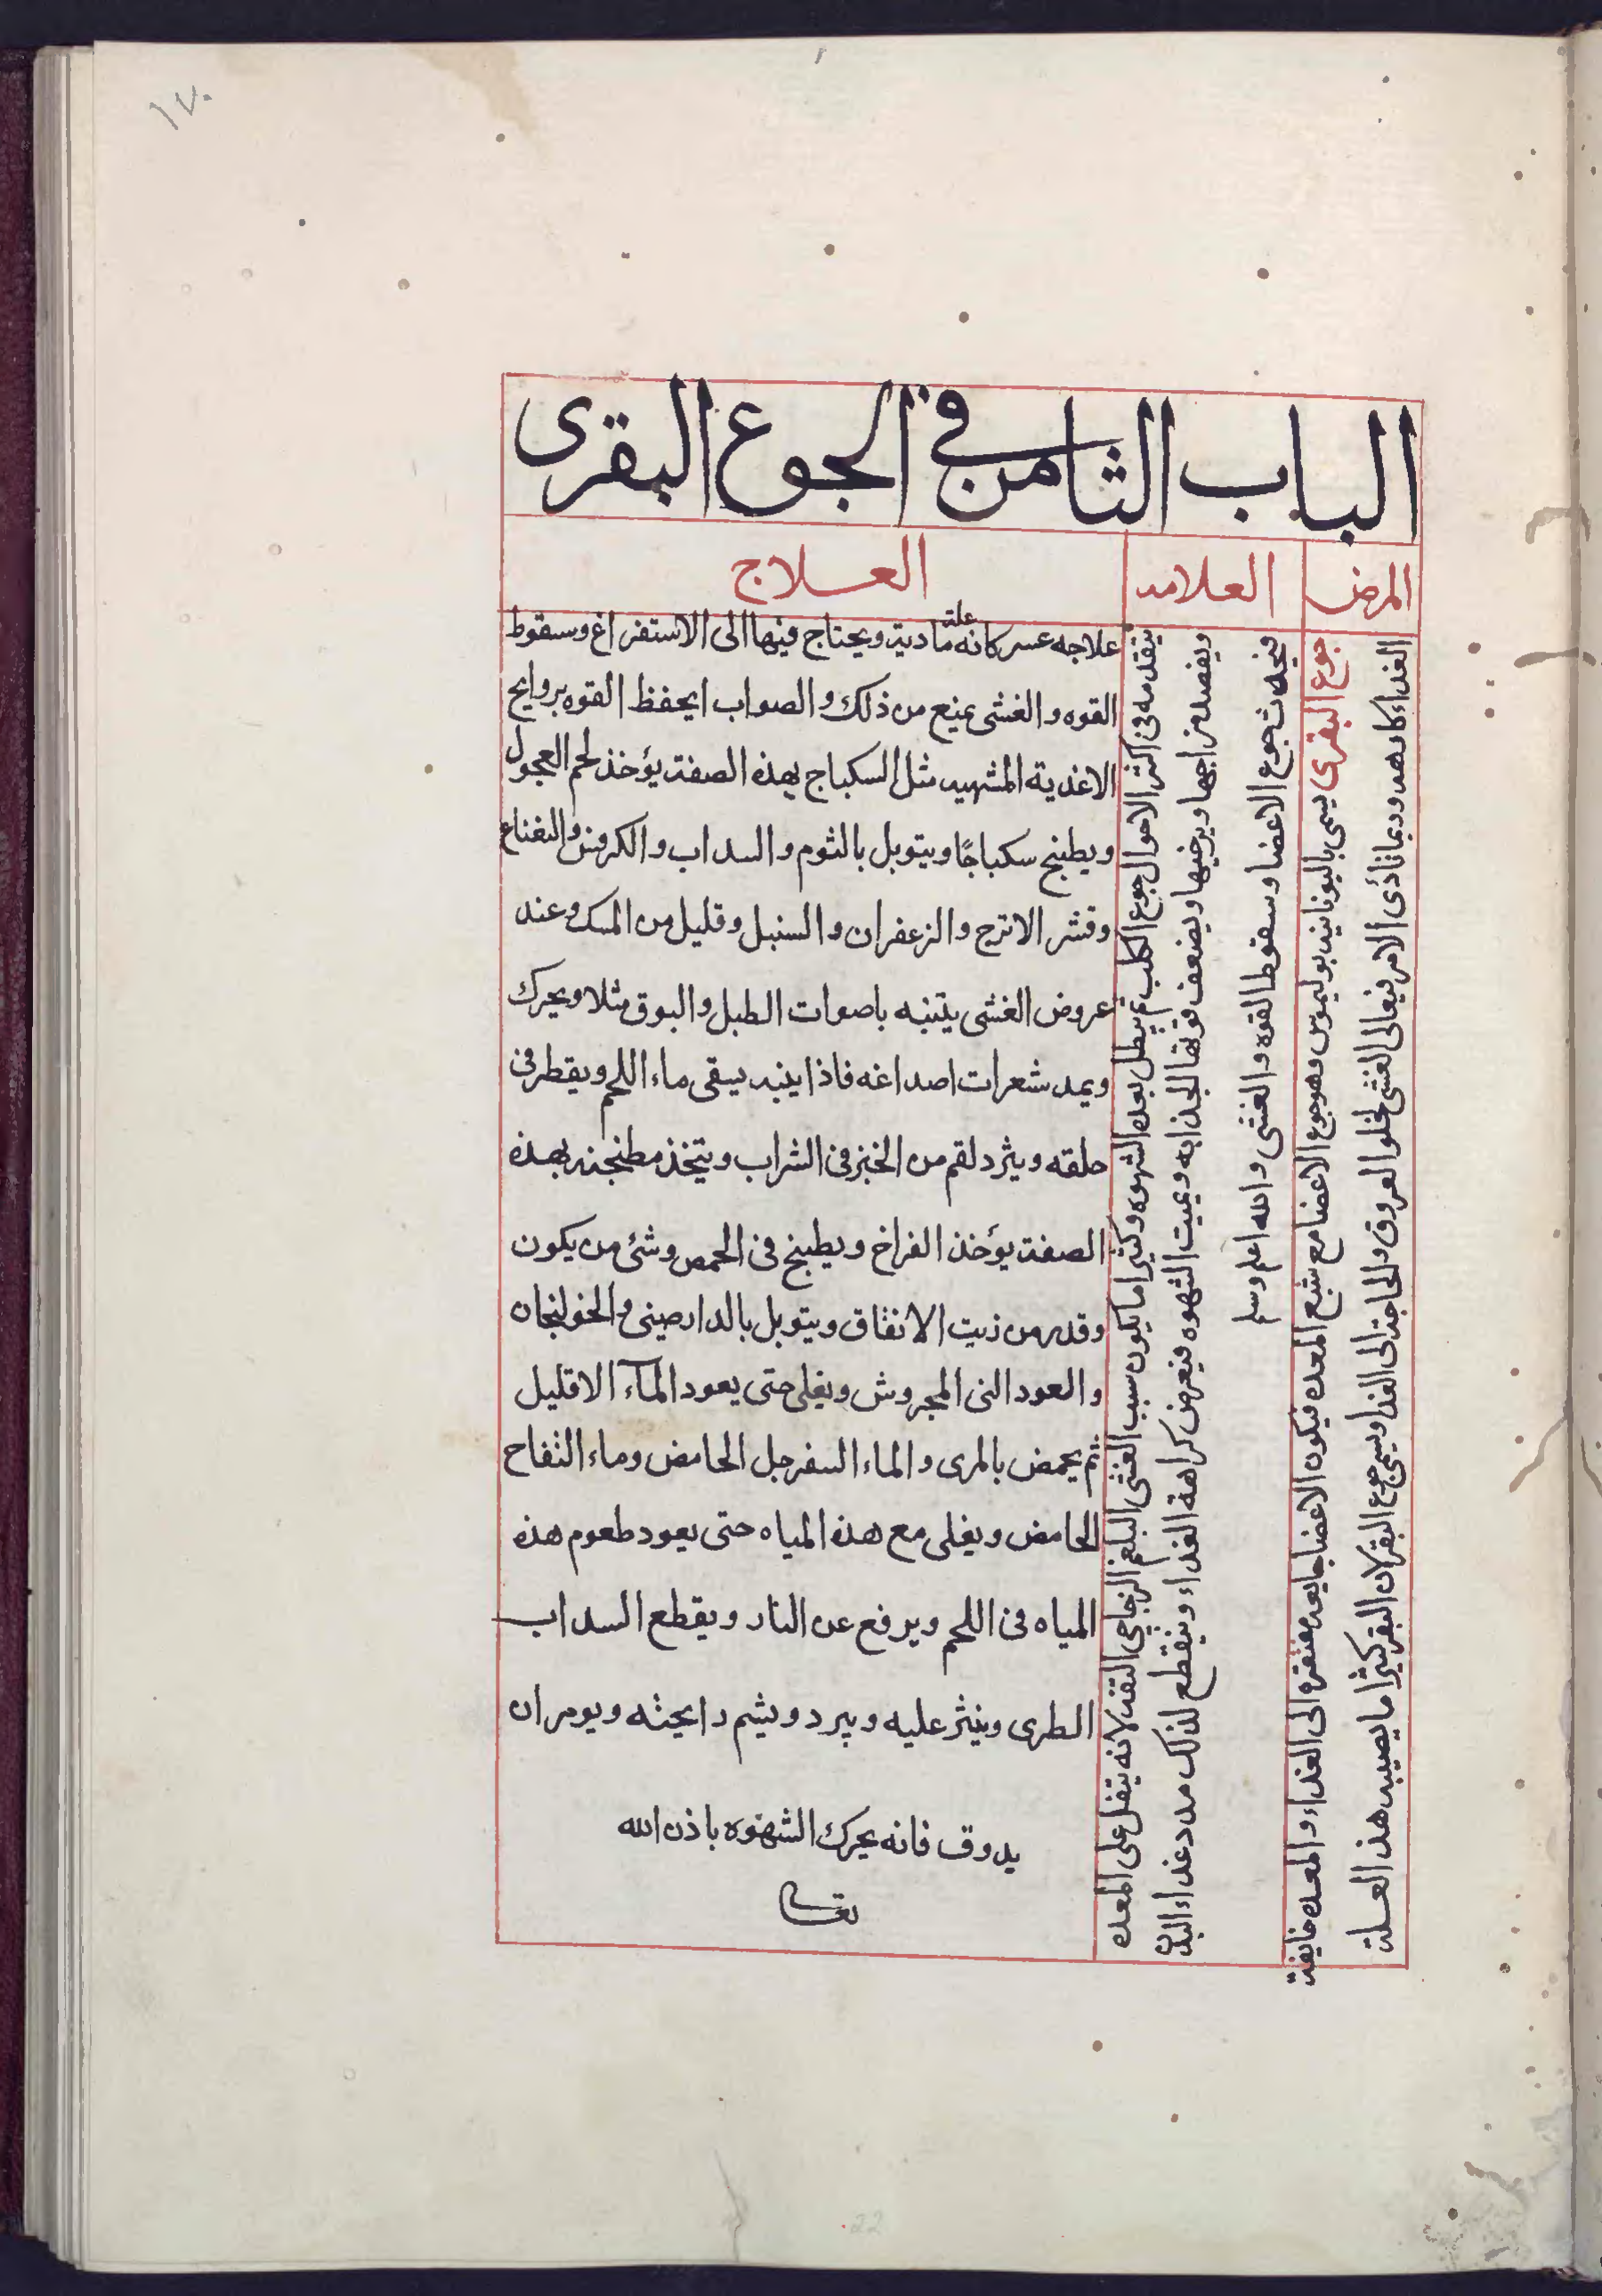 ١٧٠
الباب الثامن في الجوع البقرى
المرض
العلامه
العلاج
جوع البقرى يسمى باليونانيه بوليموس وهو جوع الاعضا مع شبع المعده فيكون الاعضا جايعه مفتقره الى الغذاء والمعده خايفة
الغذاء كارهه وربما تأدى الامر فيها الى الغشى لخلوا العروق والحاجة الى الغذا وسمى جوع البقر لان البقر كثيرا ما يصيبه هذ العلة
يتقدمه فى اكثر الاحوال جوع الكلب ثم يبطل بعده الشهوه وكثيرا ما يكون سبب الغشى البلغم الزجاجى التفه لانه يثقل على المعده
ويفسد مزاجها ويرخيها ويضعف قوتها الجذابه ويميت الشهوه فيعرض كراهة الغذاء وينقطع لذلك مدد غذاء البدن
فيحدث جوع الاعضا وسقوط القوه والغشى والله اعلم وسلم
علاجه عسر كانه علة مادية ويحتاج فيها الى الاستفراغ وسقوط
القوه والغشى يمنع من ذلك والصواب ايحفظ القوه بروايح
الاغذية المشهيه مثل السكباج بهذه الصفة يؤخذ لحم العجول
ويطبخ سكباجًا ويتوبل بالثوم والسداب والكرفس والنعناع
وقشر الاترج والزعفران والسنبل وقليل من المسك وعند
عروض الغشى يتنبه باصوات الطبل والبوق مثلا ويحرك
ويمد شعرات اصداغه فاذا ينبه يسقى ماء اللحم ويقطر فى
حلقه ويثرد لقم من الخبز فى الشراب ويتخذ مطنجنه بهذه
الصفة يؤخذ الفراخ ويطبخ فى الحمص وشئ من يكون
وقدر من زيت الانفاق ويتوبل بالدارصينى والخولنجان
والعود النى المجروش ويغلى حتى يعود المآء الاقليل
ثم يحمض بالمرى والماء السفرجل الحامض وماء التفاح
الحامض ويغلى مع هذه المياه حتى يعود طعوم هذه
المياه فى اللحم ويرفع عن النار ويقطع السداب
الطرى وينثر عليه ويبرد ويشم رايحته ويومر ان
يدوق فانه يحرك الشهوه باذن الله
تعالى